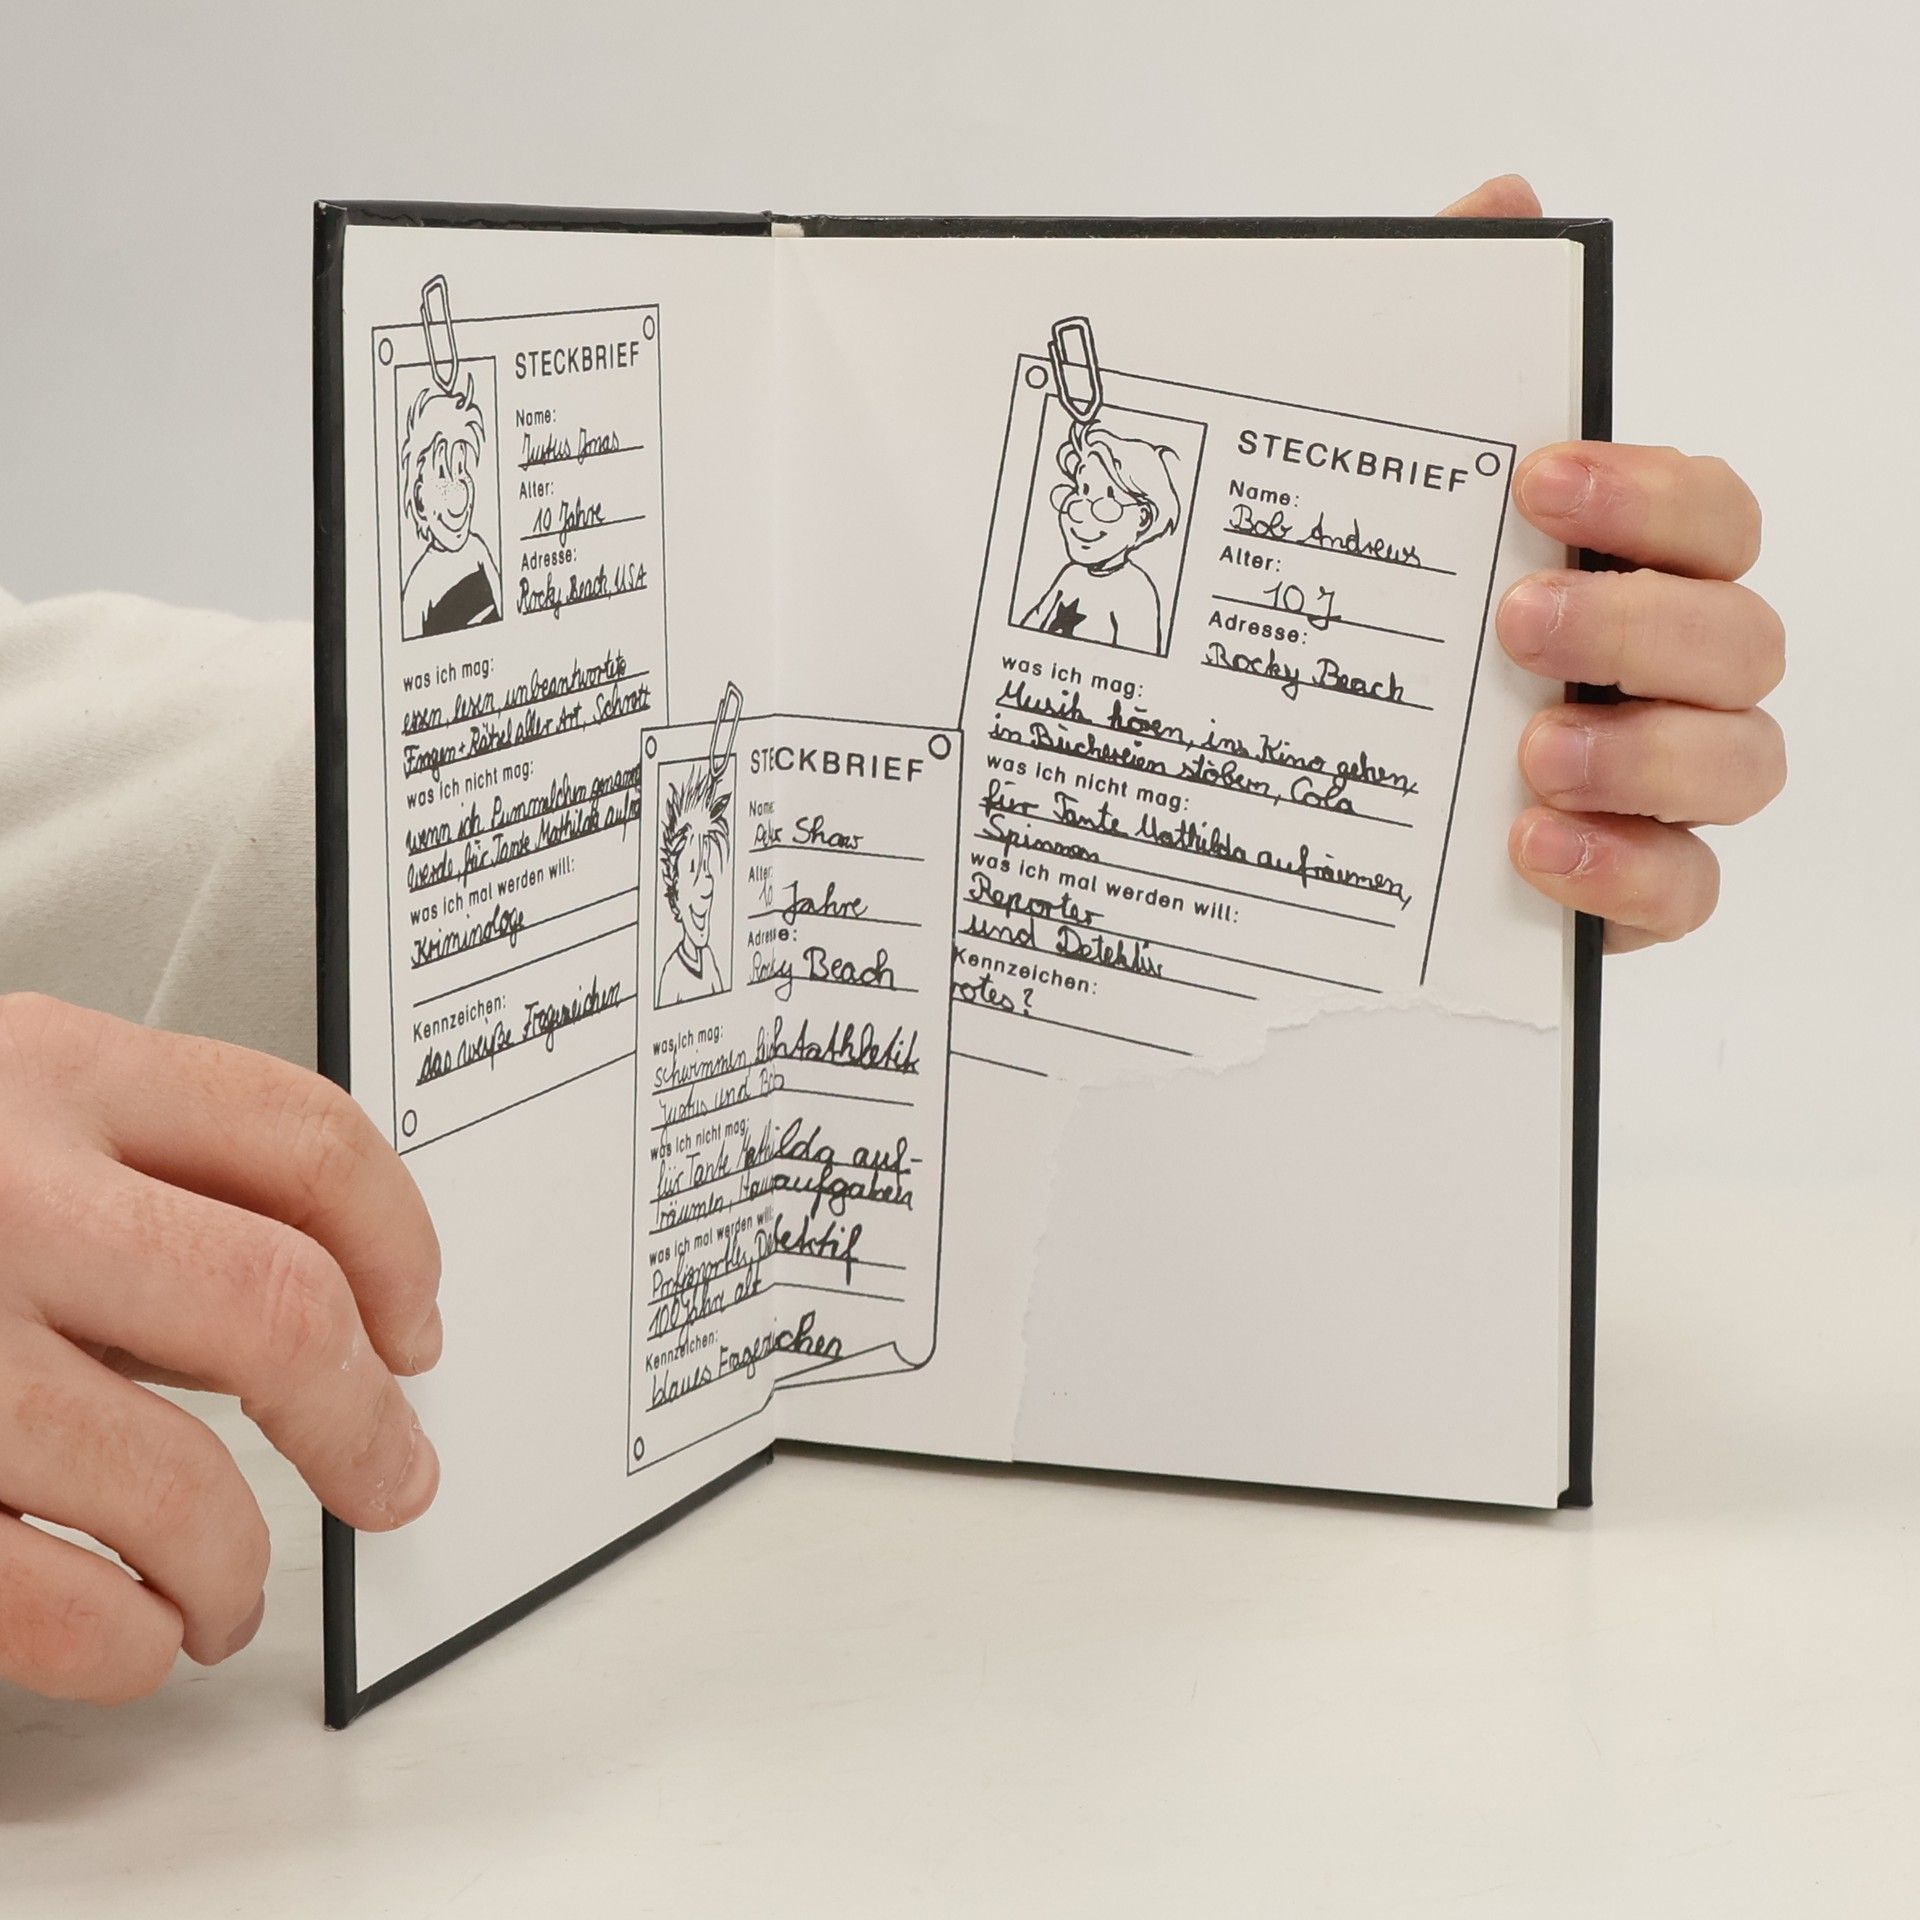 STECKBRIEF
Name:
Justus Jonas
Alter:
10 Jahre
Adresse:
Rocky Beach, USA
was ich mag:
essen, lesen, unbeantwortete
Fragen + Rätsel aller Art, Schrott
was ich nicht mag:
wenn ich Pummelchen genannt
werde, für Tante Mathilda aufrä
was ich mal werden will:
Kriminologe
Kennzeichen:
das weiße Fragezeichen
STECKBRIEF
Name:
Peter Shaw
Alter:
10 Jahre
Adresse:
Rocky Beach
was ich mag:
Schwimmen, Leichtathletik
Justus und Bob
was ich nicht mag:
für Tante Mathilda auf-
räumen, Hausaufgaben
was ich mal werden will:
Profisportler, Detektif
100 Jahre alt
Kennzeichen:
blaues Fragezeichen
STECKBRIEF
Name:
Bob Andrews
Alter:
10 J
Adresse:
Rocky Beach
was ich mag:
Musik hören, ins Kino gehen,
in Büchereien stöbern, Cola
was ich nicht mag:
für Tante Mathilda aufräumen,
Spinnen
was ich mal werden will:
Reporter
und Detektiv
Kennzeichen:
rotes ?